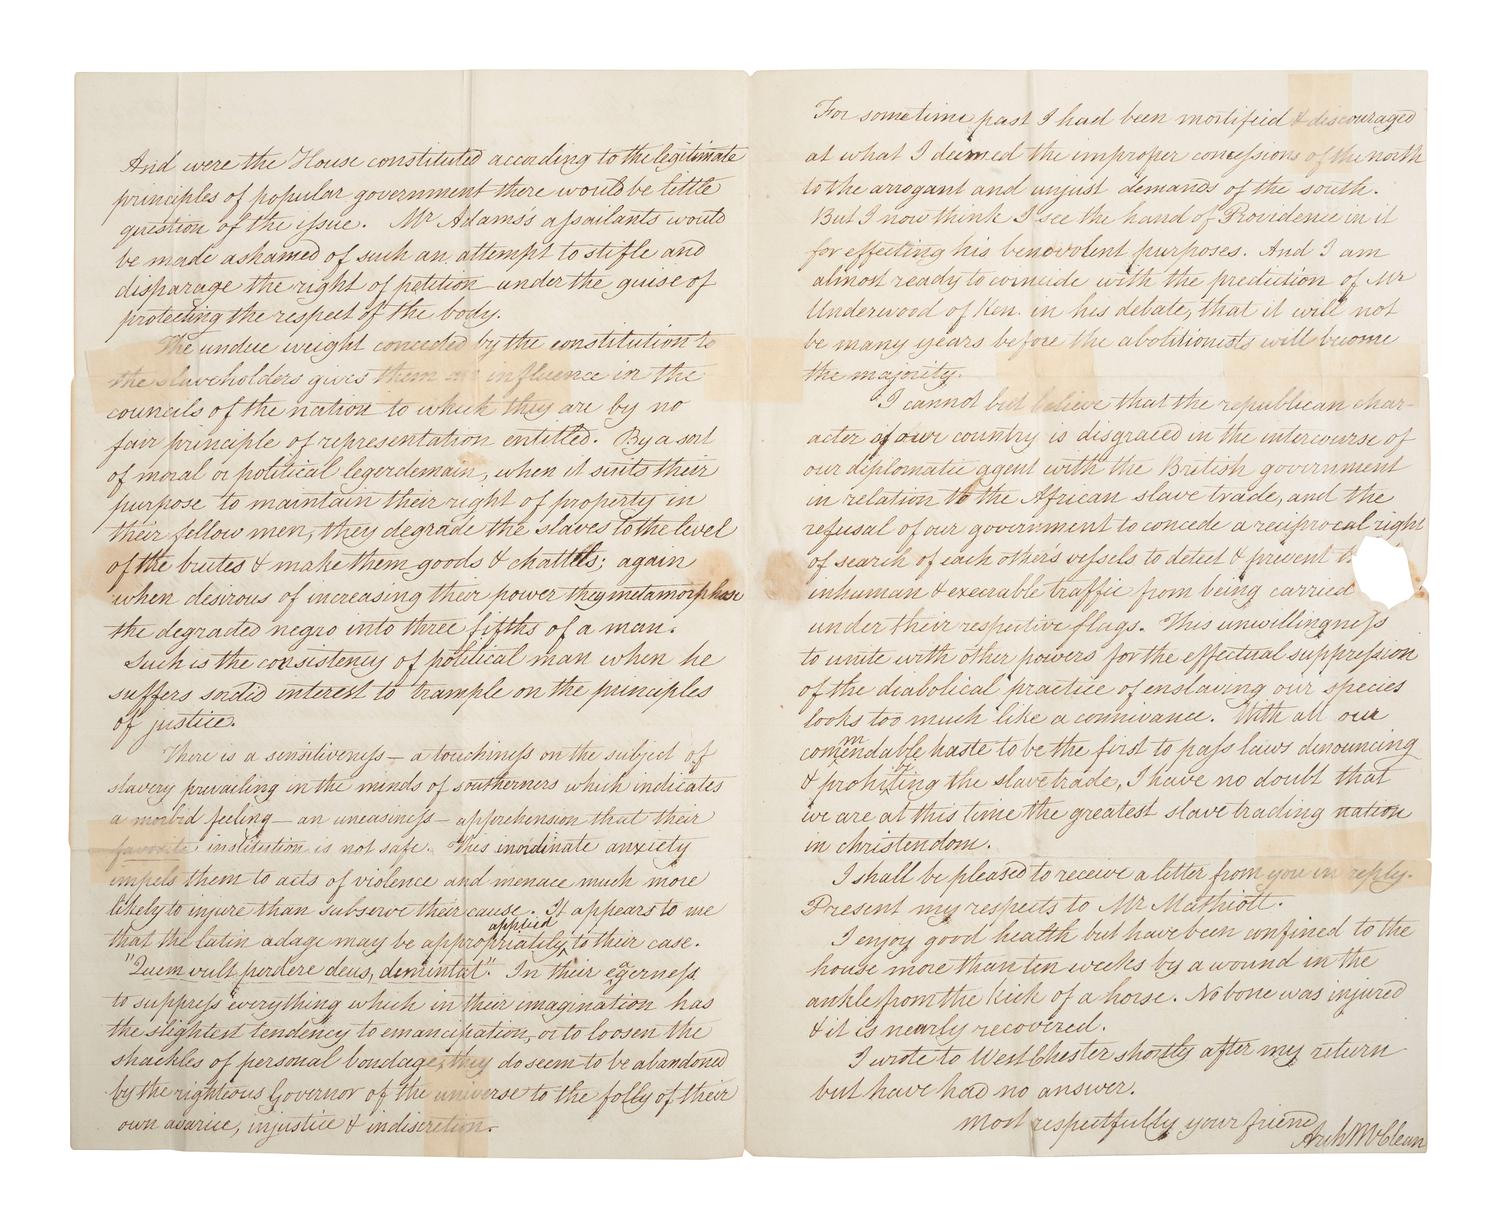 And were the House constituted according to the legitimate
principles of popular government there would be little
question of the issue. Mr Adams's assailants would
be made ashamed of such an attempt to stifle and
disparage the right of petition under the guise of
protecting the respect of the body.
The undue weight conceded by the constitution to
the slaveholders gives them an influence in the
councils of the nation to which they are by no
fair principle of representation entitled. By a sort
of moral or political legerdemain, when it suits their
purpose to maintain their right of property in
their fellow men, they degrade the slaves to the level
of the brutes & make them goods & chattels; again
when desirous of increasing their power they metamorphose
the degraded negro into three fifths of a man.
Such is the consistency of political man when he
suffers sordid interest to trample on the principles
of justice.
There is a sensitiveness – a touchiness on the subject of
slavery prevailing in the minds of southerners which indicates
a morbid feeling – an uneasiness – apprehension that their
favorite institution is not safe. This inordinate anxiety
impels them to acts of violence and menace much more
likely to injure than subserve their cause. It appears to me
applied
that the latin adage may be appropriately ‸ to their case.
"Quem vult perdere deus, demintat". In their eagerness
to suppress everything which in their imagination has
the slightest tendency to emancipation, or to loosen the
shackles of personal bondage; they do seem to be abandoned
by the righteous Governor of the universe to the folly of their
own avarice, injustice & indiscretion.
For sometime past I had been mortified & discouraged
at what I deemed the improper concessions of the north
to the arrogant and unjust demands of the south.
But I now think I see the hand of Providence in it
for effecting his benovolent purposes. And I am
almost ready to coincide with the prediction of Mr
Underwood of Ken. in his debate, that it will not
be many years before the abolitionists will become
the majority.
I cannot but believe that the republican char-
acter of our country is disgraced in the intercourse of
our diplomatic agent with the British government
in relation to the African slave trade, and the
refusal of our government to concede a reciprocal right
of search of each other's vessels to detect & prevent
inhuman & execrable traffic from being carried
under their respective flags. This unwillingness
to unite with other powers for the effectual suppression
of the diabolical practice of enslaving our species
looks too much like a connivance. With all our
commendable haste to be the first to pass laws denouncing
& prohibiting the slave trade, I have no doubt that
we are at this time the greatest slave trading nation
in christendom.
I shall be pleased to receive a letter from you in reply.
Present my respects to Mr Mathiott.
I enjoy good health but have been confined to the
house more than ten weeks by a wound in the
ankle from the kick of a horse. No bone was injured
& it is nearly recovered.
I wrote to West Chester shortly after my return
but have had no answer.
Most respectfully your friend
Arch McClean